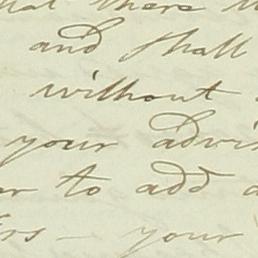 that there
and shall
without
your advi
er to add a
rs — your